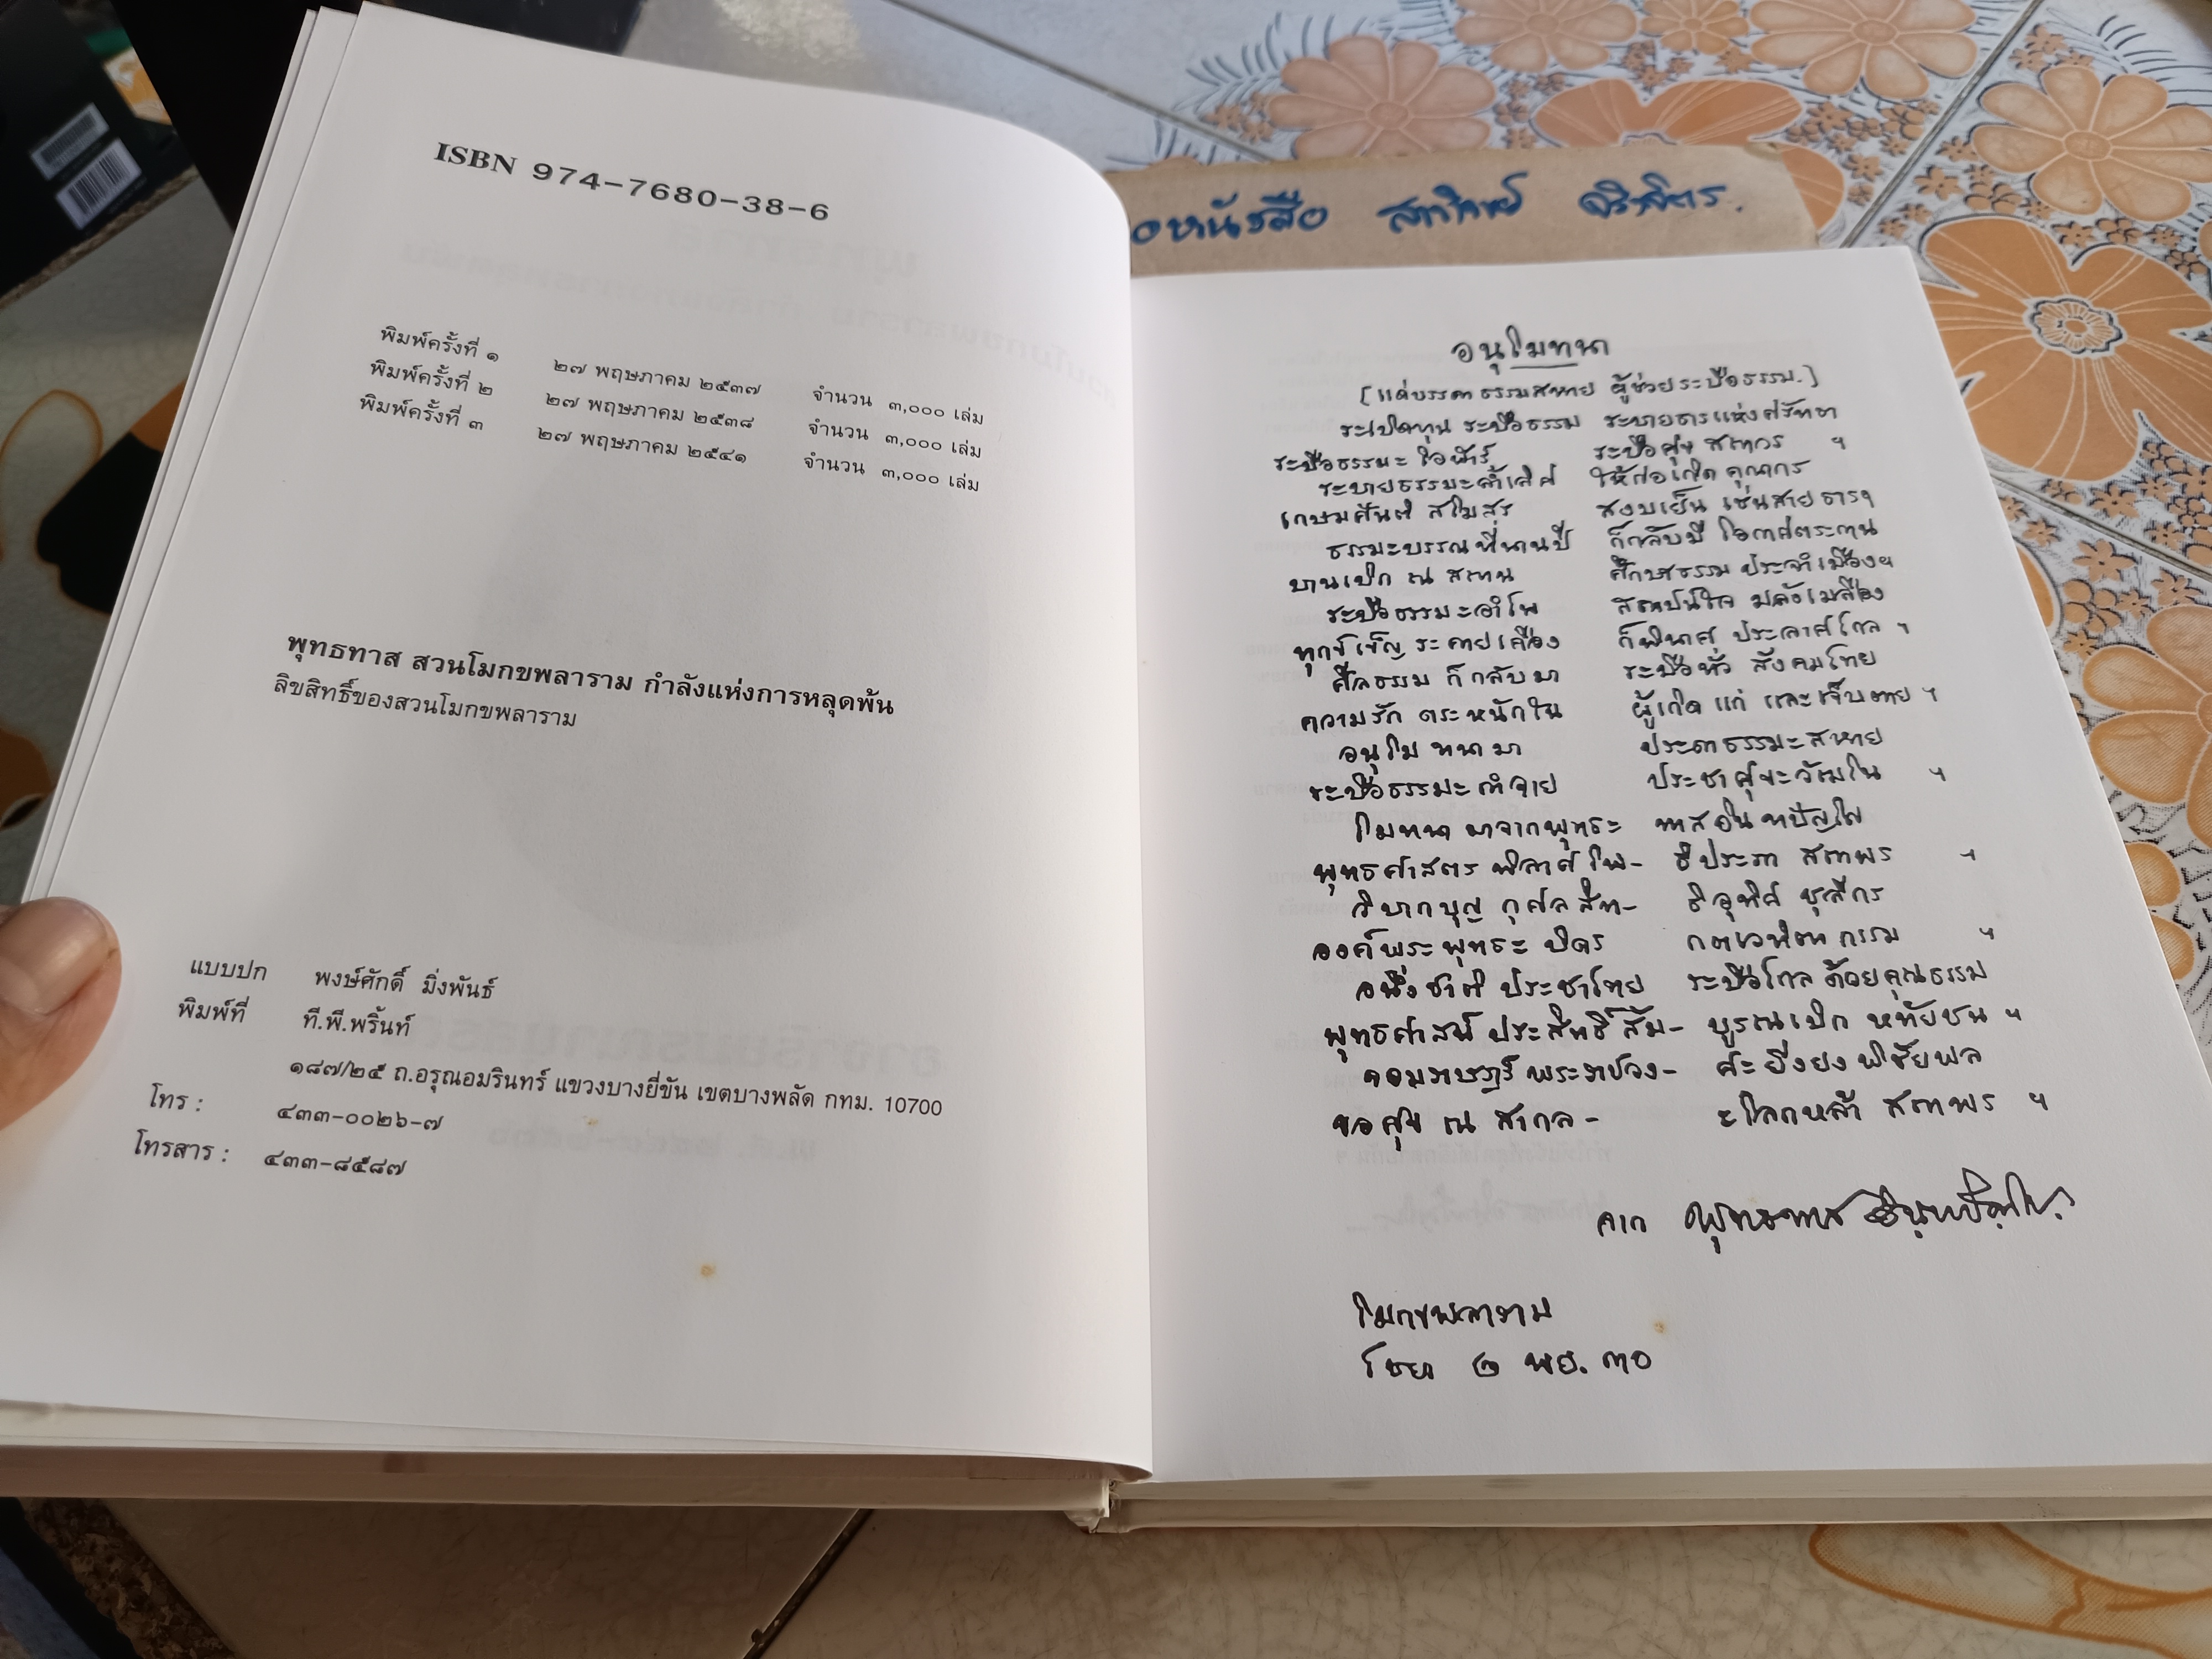 ISBN 974-7680-38-6
พิมพ์ครั้งที่ ๑ ๒๗ พฤษภาคม ๒๕๓๗ จำนวน ๓,๐๐๐ เล่ม
พิมพ์ครั้งที่ ๒ ๒๗ พฤษภาคม ๒๕๓๘ จำนวน ๓,๐๐๐ เล่ม
พิมพ์ครั้งที่ ๓ ๒๗ พฤษภาคม ๒๕๔๑ จำนวน ๓,๐๐๐ เล่ม
พุทธทาส สวนโมกขพลาราม กำลังแห่งการหลุดพ้น
ลิขสิทธิ์ของสวนโมกขพลาราม
แบบปก พงษ์ศักดิ์ มิ่งพันธ์
พิมพ์ที่ ที.พี.พริ้นท์
๑๘๗/๒๕ ถ.อรุณอมรินทร์ แขวงบางยี่ขัน เขตบางพลัด กทม. 10700
โทร : ๔๓๓-๐๐๒๖-๗
โทรสาร : ๔๓๓-๘๕๘๗
หนังสือ
อนุโมทนา
[แด่บรรดาธรรมสหาย ผู้ช่วยระบือธรรม.]
ระบือธรรม ระบายธารแห่งศรัทธา
ระบือธรรมะ ระบือศุข สถาวร ฯ
ระบายธรรมะล้ำเลิศ ให้ก่อเกิด คุณากร
เกษมศันต์ สโมสร สงบเย็น เช่นสายธารฯ
ก็กลับมี โอกาศ
ณ สถาน ศึกษาธรรม ประจำเมืองฯ
ระบือธรรมะ
ทุกข์เข็ญ ระคายเคือง ก็พินาศ ประลาศไกล ฯ
ศีลธรรม ก็กลับมา ระบือทั่ว สังคมไทย
ความรัก ตระหนักใน ผู้เกิด แก่ และเจ็บตาย ฯ
อนุโมทนามา ประดาธรรมะสหาย
ระบือธรรมะ ประชาศุขะ ฯ
โมทนา มาจากพุทธะ ทาสอินทปัญโญ
พุทธศาสตร พิลาศโพ- ธิประภา สถาพร ฯ
วิบากบุญ กุศลสิท- ธิอุทิศ ชุลีกร
องค์พระพุทธะ บิดร กตเวทิตา กรรม ฯ
อนึ่งชาติ ประชาไทย ระบือไกล ด้วยคุณธรรม
พุทธศาสน์ ประสิทธิ์สัม- บูรณเบิก หทัยชน ฯ
พระราชวง- ศะ ยิ่งยง พิชัยพล
ขอศุข ณ สากล- ะโลกหล้า สถาพร ฯ
จาก พุทธทาส อินฺทปญฺโญ
โมกขพลาราม
ไชยา ๒ พย. ๓๐